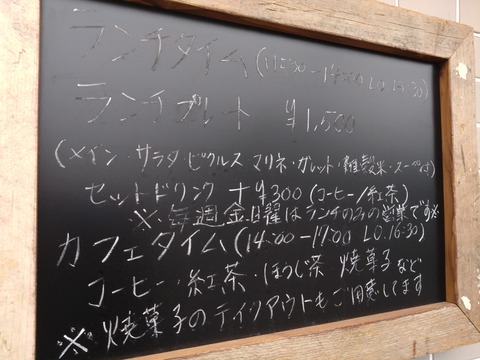 ランチタイム (11:00-14:00 LO 13:30)
ランチプレート ¥1,500
(メイン・サラダ・ピクルス マリネ・ガレット・雑穀米・スープ付)
セットドリンク +¥300 (コーヒー/紅茶)
※毎週金曜はランチのみの営業です※
カフェタイム(14:00-17:00 LO.16:30)
コーヒー・紅茶・ほうじ茶 焼菓子など
※焼菓子のテイクアウトもご用意してます